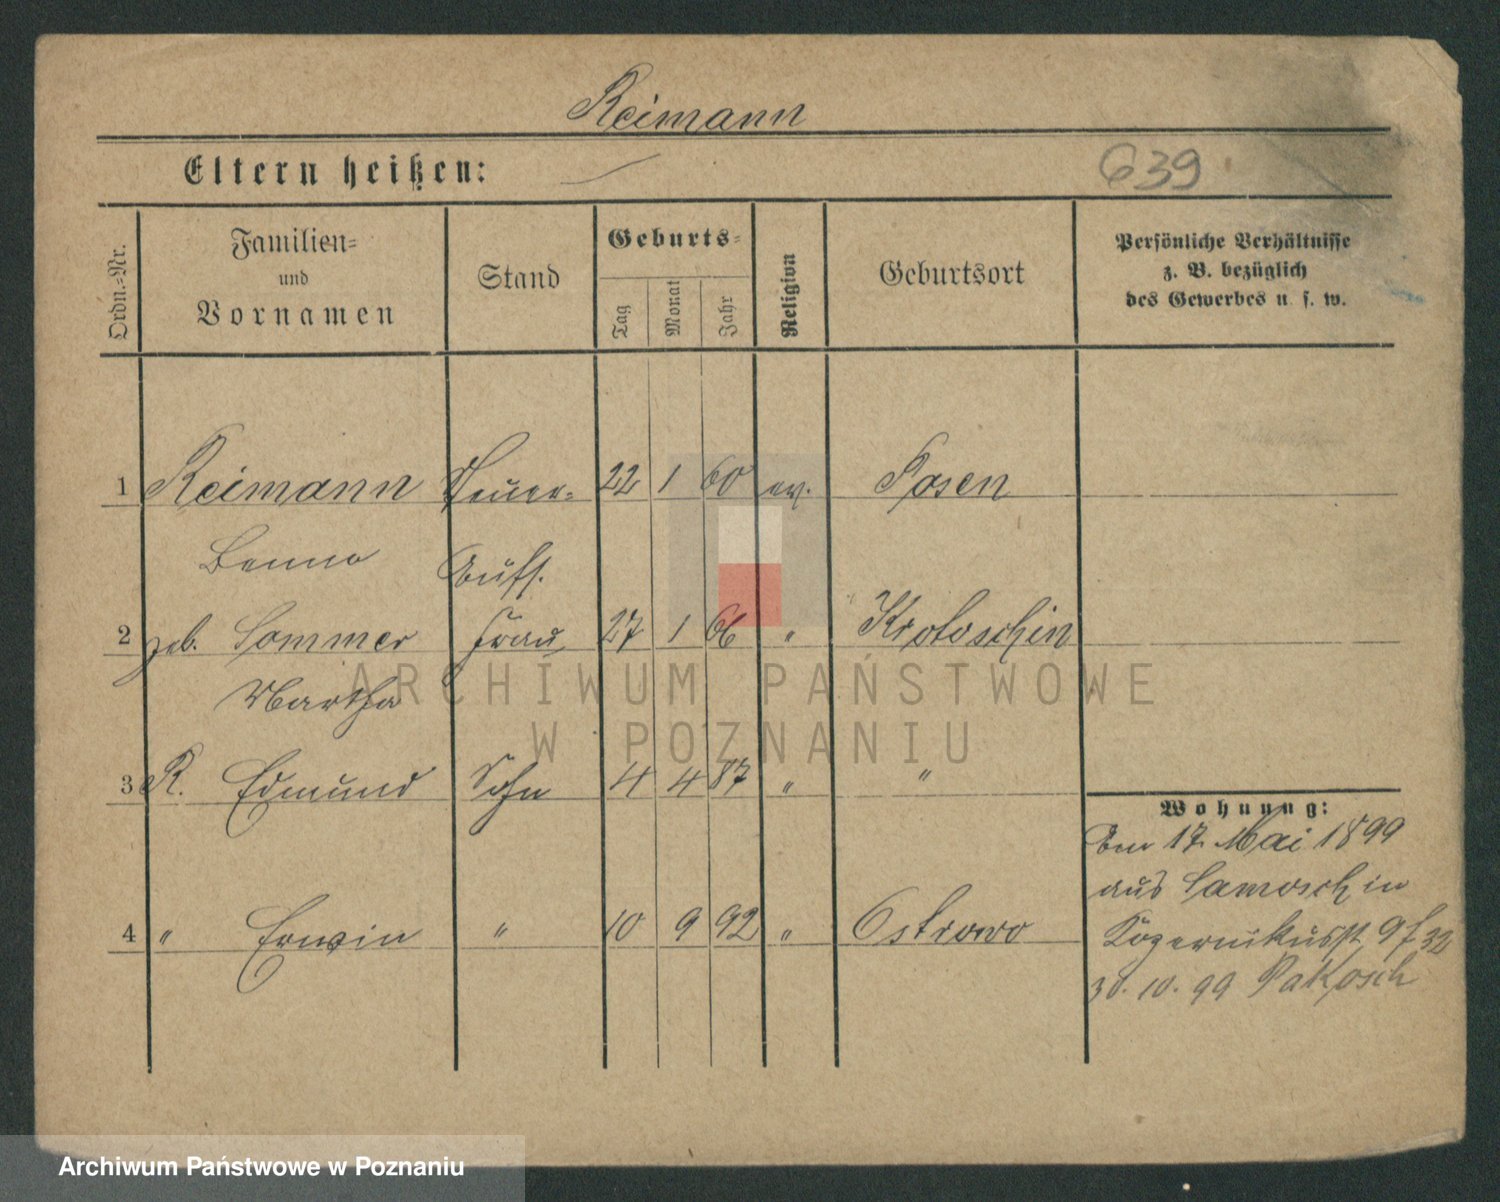 Reimann
Eltern heißen: —
639
Ordn.-Nr.
Familien-
und
Vornamen
Stand
Geburts-
Tag
Monat
Jahr
Religion
Geburtsort
Persönliche Verhältnisse
z. B. bezüglich
des Gewerbes u. s. w.
1 Reimann Steuer- 22 1 60 ev. Posen
Benno Aufs.
2 geb. Sommer Frau 27 1 66 " Krotoschin
Martha
3 R. Edmund Sohn 4 4 87 " "
Wohnung:
Am 17. Mai 1899
aus Samoschin
4 " Erwin " 10 9 92 " Ostrowo
9 f 32
30. 10. 99 Pakosch
ARCHIWUM PAŃSTWOWE
W POZNANIU
Archiwum Państwowe w Poznaniu